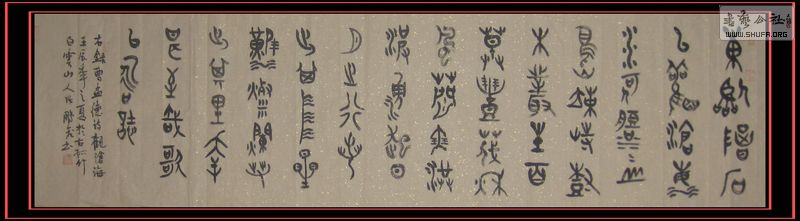 書藝公社
WWW.SHUFA.ORG
東臨碣石
以觀滄海
水何澹〻山
島竦峙樹
木叢生百
草豐茂秋
風蕭瑟洪
波湧起日
月之行若
出其中星
漢燦爛若
出其里幸
甚至哉歌
以詠誌
右錄曹孟德詩觀滄海
壬辰年之夏於古
白雲山人